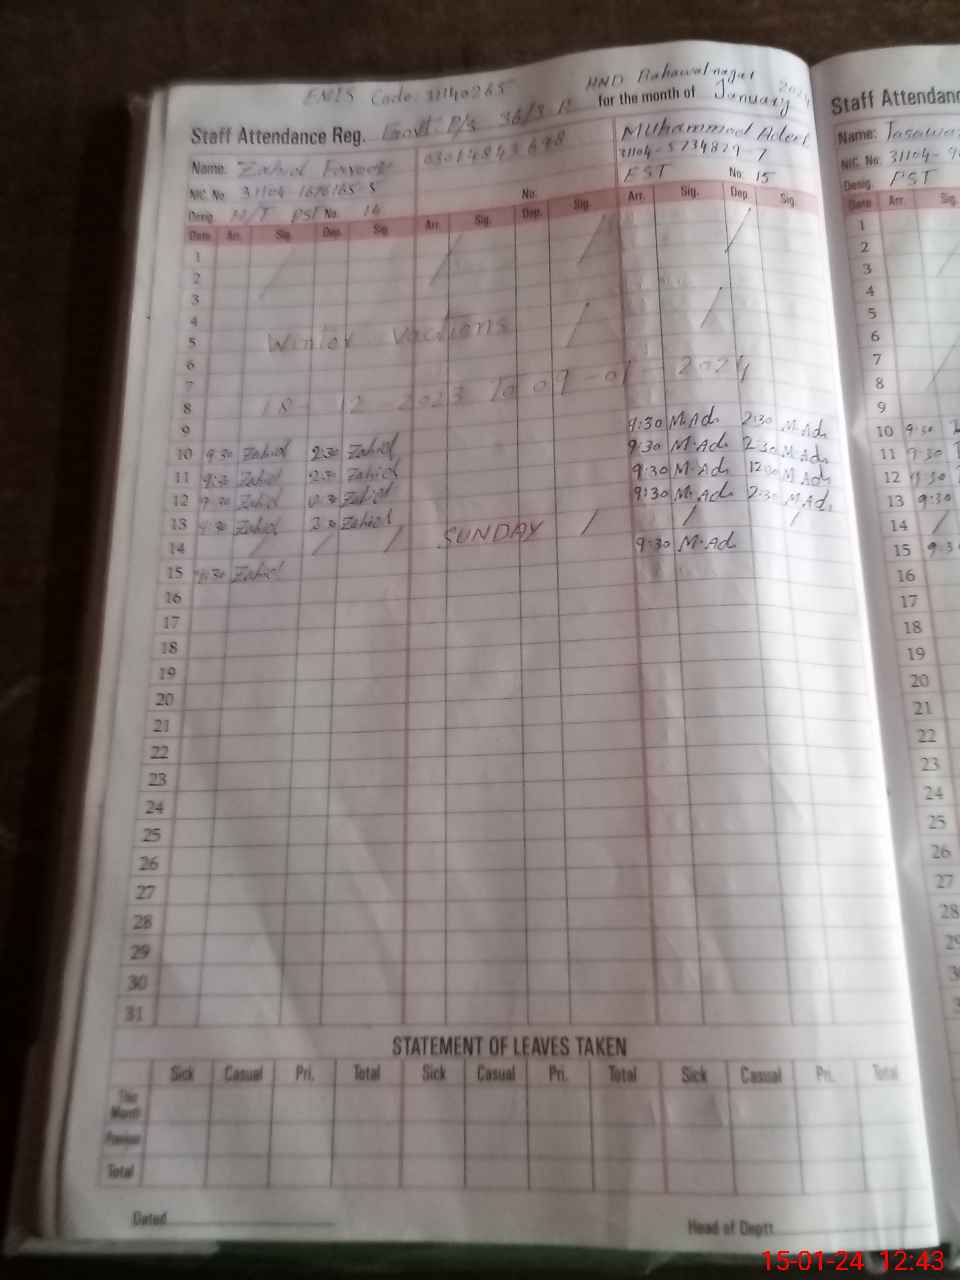 EMIS Code: 31140265 MND Bahawalnagar
Staff Attendance Reg. Govt. P/s 36/3.R for the month of January 2024
Name: Zahid 03014843698 Muhammad Adeel
NIC. No. 31104-1676165-5 31104-5734829-7
Desig. H/T PST No. 14 No. PST No. 15
Date Arr. Sig. Dep. Sig. Arr. Sig. Dep. Sig. Arr. Sig. Dep. Sig.
1
2
3
4
5 Winter Vactions
6
7
8 18-12-2023 To 09-01-2024
9
10 9:30 Zahid 2:30 Zahid 9:30 M.Ad 2:30 M.Ad
11 9:30 Zahid 2:30 Zahid 9:30 M.Ad 2:30 M.Ad
12 9:30 Zahid Zahid 9:30 M.Ad 12:00 M.Ad
13 9:30 Zahid 2:30 Zahid 9:30 M.Ad 2:30 M.Ad
14 SUNDAY
15 9:30 Zahid 9:30 M.Ad
16
17
18
19
20
21
22
23
24
25
26
27
28
29
30
31
STATEMENT OF LEAVES TAKEN
Sick Casual Pri. Total Sick Casual Pri. Total Sick Casual Pri. Total
This Month
Previous
Total
Dated Head of Deptt.
Staff Attendanc
Name:
NIC. No. 31104-
Desig. PST
Date Arr. Sig.
1
2
3
4
5
6
7
8
9
10 9:30
11 9:30
12 9:30
13 9:30
14
15 9:3
16
17
18
19
20
21
22
23
24
25
26
27
28
29
15-01-24 12:43